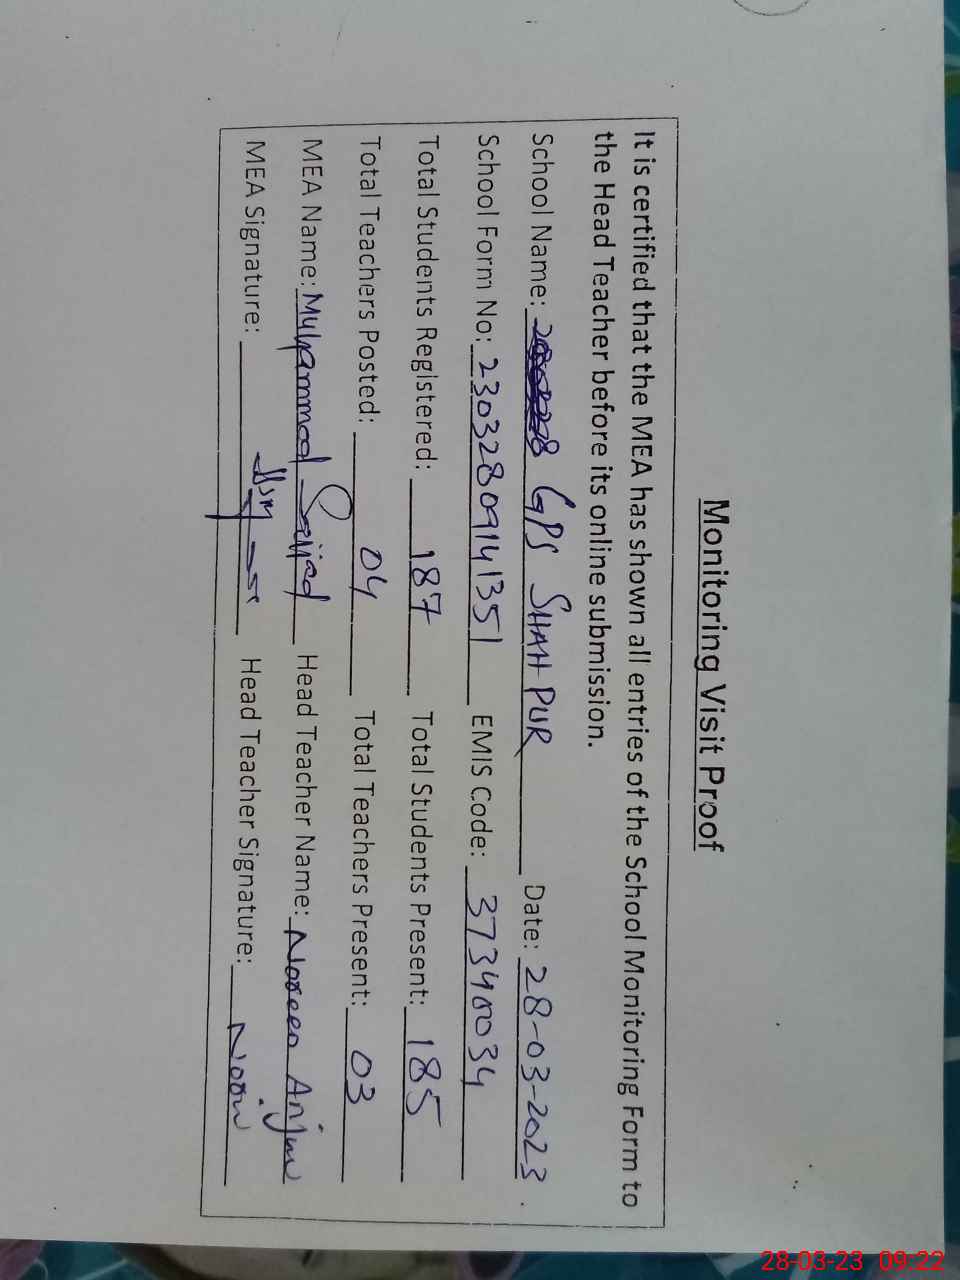 Monitoring Visit Proof
It is certified that the MEA has shown all entries of the School Monitoring Form to
the Head Teacher before its online submission.
School Name: GPS SHAH PUR Date: 28-03-2023.
School Form No: 23032809141351 EMIS Code: 37340034
Total Students Registered: 187 Total Students Present: 185
Total Teachers Posted: 04 Total Teachers Present: 03
MEA Name: Muhammad Sajjad Head Teacher Name: Noreen Anjum
MEA Signature: Head Teacher Signature:
28-03-23 09:22